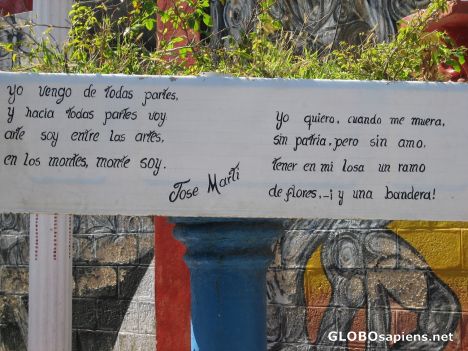 yo vengo de todas partes,
y hacia todas partes voy
arte soy entre las artes,
en los montes, monte soy.
Jose Martí
Yo quiero, cuando me muera,
sin patria, pero sin amo,
tener en mi losa un ramo
de flores,-¡y una bandera!
GLOBOsapiens.net